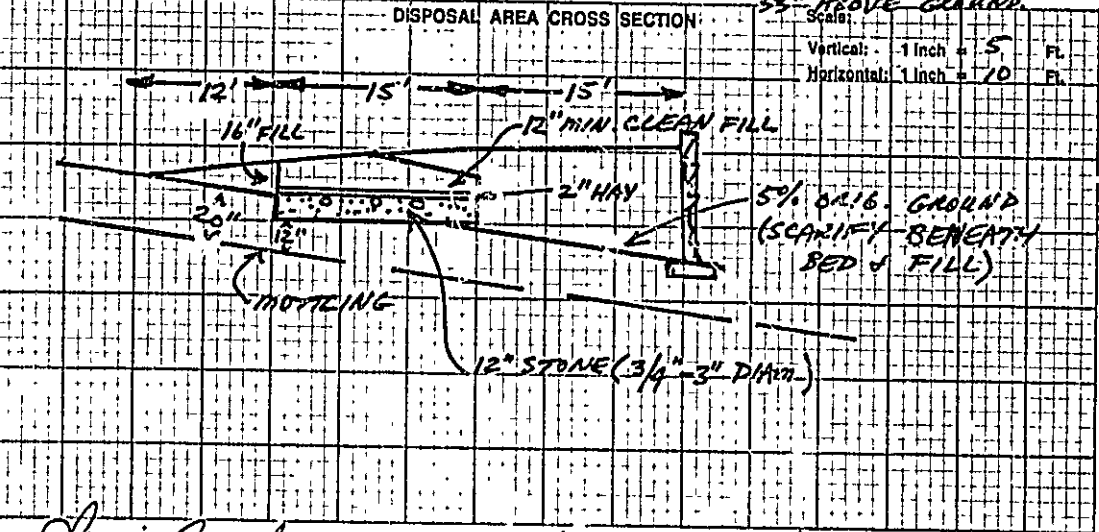 DISPOSAL AREA CROSS SECTION
ABOVE GROUND.
Scale:
Vertical: 1 inch = 5 Ft.
Horizontal: 1 inch = 10 Ft.
12' 15' 15'
16" FILL
12" MIN. CLEAN FILL
2" HAY
20"
12"
5% ORIG. GROUND
(SCARIFY BENEATH
BED & FILL)
MOTTLING
12" STONE (3/4"-3" DIAM)